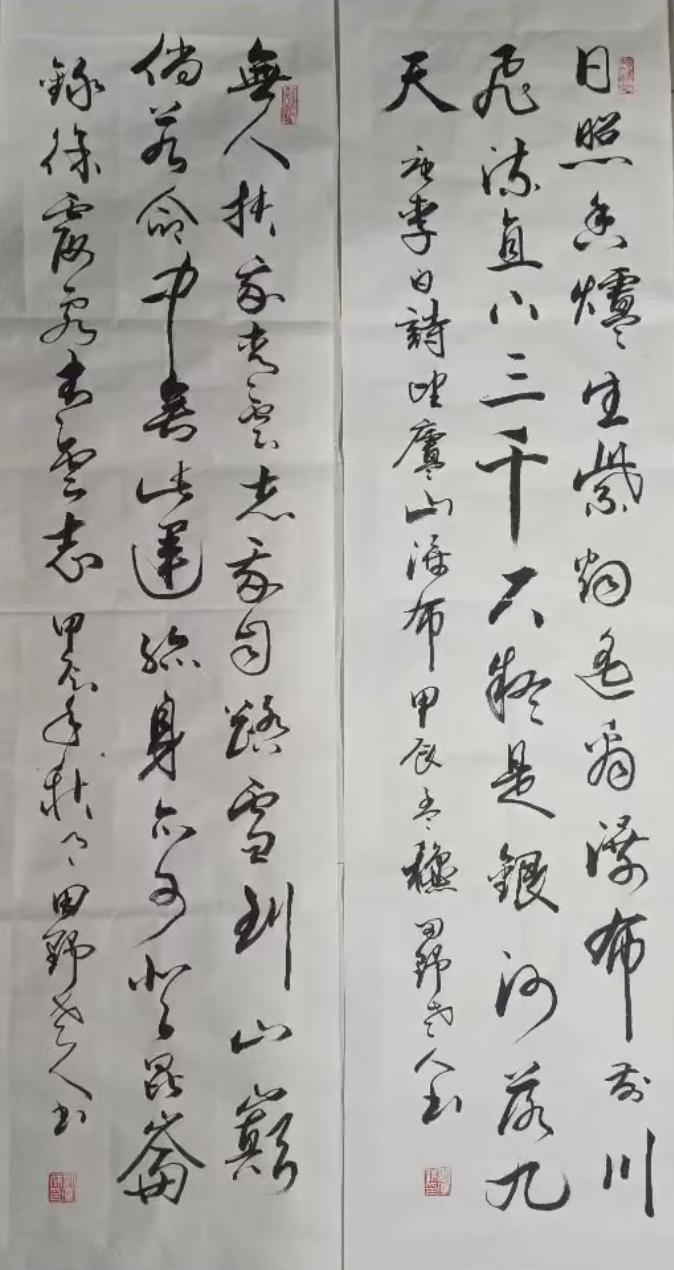 日照香爐生紫烟遥看瀑布前川
飛流直下三千尺疑是銀河落九
天 唐李白詩望廬山瀑布 甲辰穐 田野老人书
無人扶我青雲志我自踏雪到山巔
倘若命中無此運孤身亦可登昆崙
錄徐霞客青雲志 甲辰年秋月 田野老人书